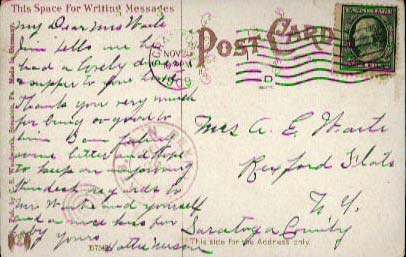 This Space For Writing Messages
My Dear Mrs Waite
Jim tells me he
had a lovely dinner
& supper to your house
Thanks you very much
for being so good to
him I am feeling
some better and hope
to keep on improving
Kindest regards to
Mr Waite and yourself
and a nice kiss for
baby yours
POST CARD
NOV 2
Mrs A. E. Waite
Rexford Flats
N. Y.
Saratoga County
This side for the Address only.